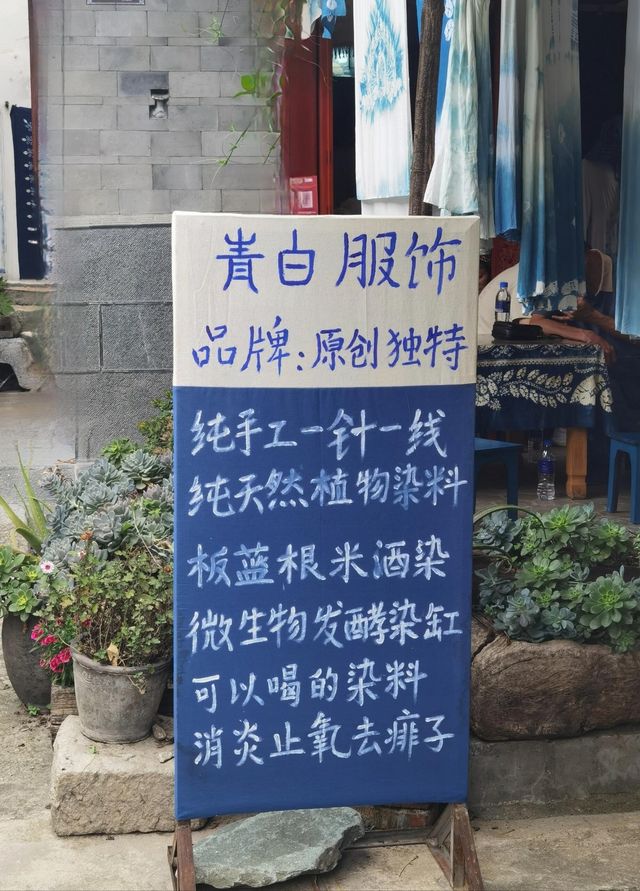 青白服饰
品牌:原创独特
纯手工一针一线
纯天然植物染料
板蓝根米酒染
微生物发酵染缸
可以喝的染料
消炎止氧去痱子